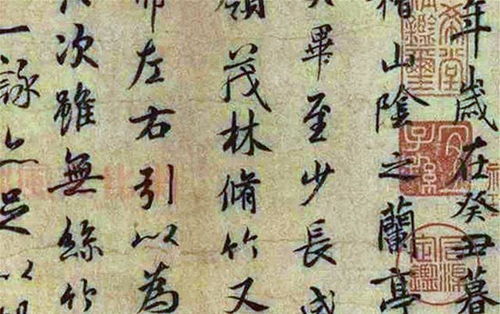 年歲在癸丑暮
稽山陰之蘭亭
畢至少長咸
領茂林脩竹又
帶左右引以為
次雖無絲竹
一詠亦足以